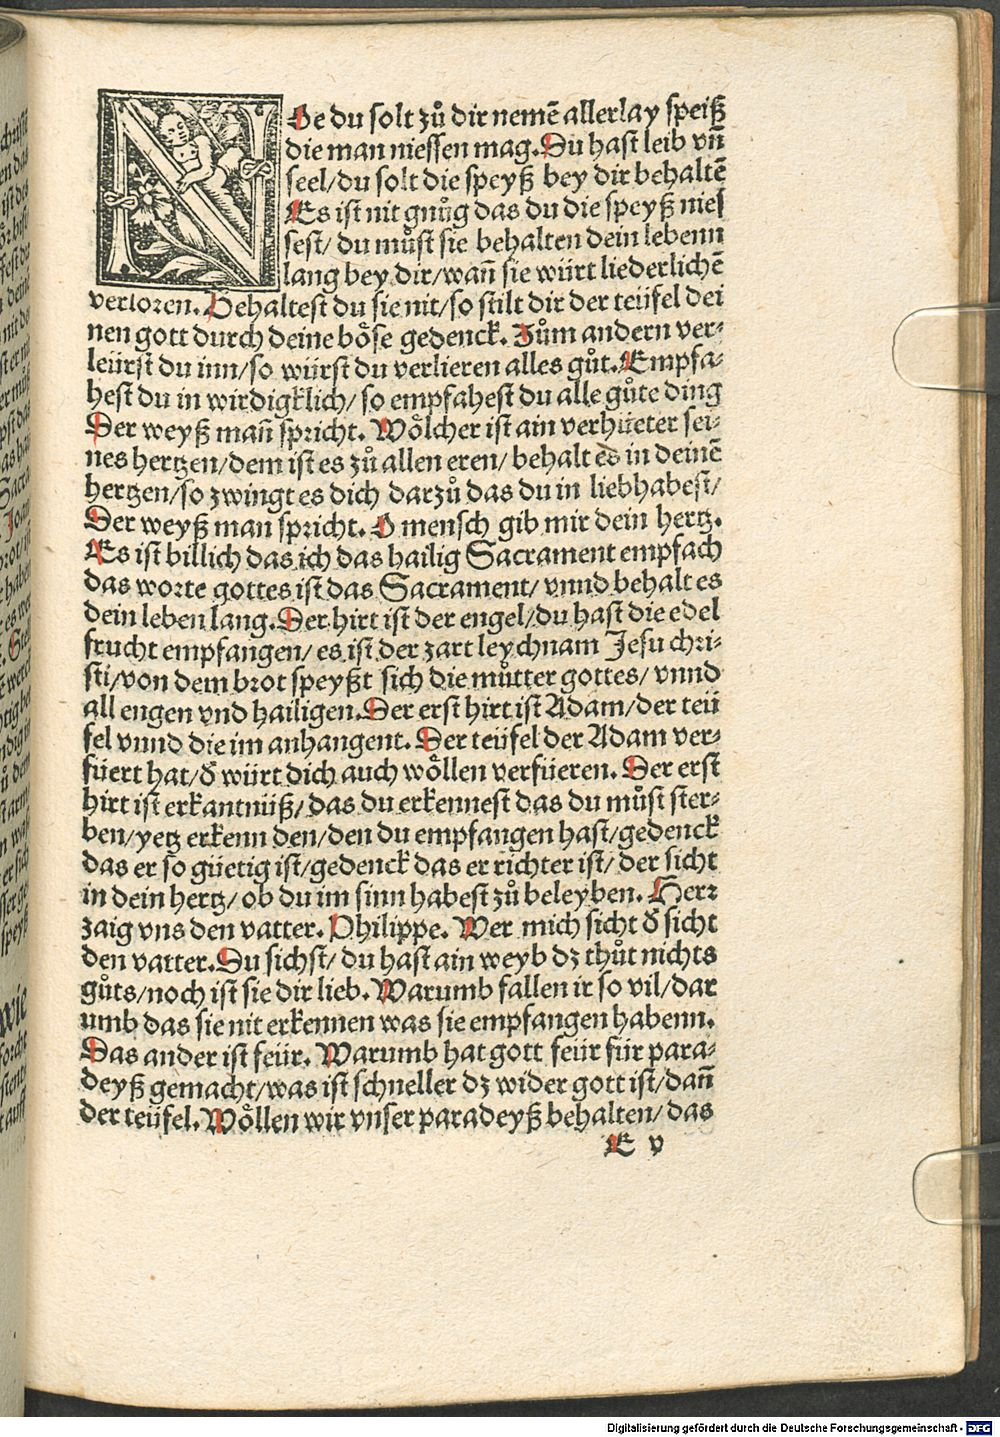 NOe du solt zů dir nemē allerlay speiß
die man niessen mag. Du hast leib vn̄
seel/ du solt die speyß bey dir behaltē
Es ist nit gnůg das du die speyß nies
sest/ du můst sie behalten dein lebenn
lang bey dir/ wan̄ sie würt liederlichē
verloren. Behaltest du sie nit/ so stilt dir der teüfel dei
nen gott durch deine bȯse gedenck. Zům andern ver⸗
leürst du inn/ so würst du verlieren alles gůt. Empfa⸗
hest du in wirdigklich/ so empfahest du alle gůte ding
Der weyß man̄ spricht. Wȯlcher ist ain verhüeter sei⸗
nes hertzen/ dem ist es zů allen eren/ behalt es in deinē
hertzen/ so zwingt es dich darzů das du in liebhabest/
Der weyß man spricht. O mensch gib mir dein hertz.
Es ist billich das ich das hailig Sacrament empfach
das worte gottes ist das Sacrament/ vnnd behalt es
dein leben lang. Der hirt ist der engel/ du hast die edel
frucht empfangen/ es ist der zart leychnam Jesu chri⸗
sti/ von dem brot speyßt sich die můtter gottes/ vnnd
all engen vnd hailigen. Der erst hirt ist Adam/ der teü
fel vnnd die im anhangent. Der teüfel der Adam ver⸗
füert hat/ đ würt dich auch wȯllen verfüeren. Der erst
hirt ist erkantnüß/ das du erkennest das du můst ster⸗
ben/ yetz erkenn den/ den du empfangen hast/ gedenck
das er so güetig ist/ gedenck das er richter ist/ der sicht
in dein hertz/ ob du im sinn habest zů beleyben. Herr
zaig vns den vatter. Philippe. Wer mich sicht đ sicht
den vatter. Du sichst/ du hast ain weyb dz thůt nichts
gůts/ noch ist sie dir lieb. Warumb fallen ir so vil/ dar
umb das sie nit erkennen was sie empfangen habenn.
Das ander ist feür. Warumb hat gott feür für para⸗
deyß gemacht/ was ist schneller dz wider gott ist/ dan̄
der teüfel. Wȯllen wir vnser paradeyß behalten/ das
E v
Digitalisierung gefördert durch die Deutsche Forschungsgemeinschaft - DFG